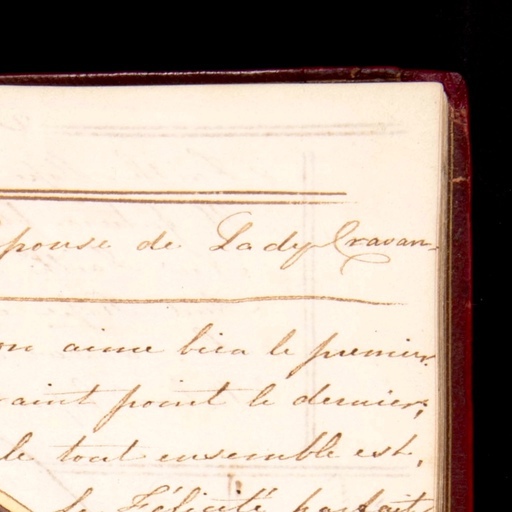 pouse de Lady Cravan-
on aime bien le premier
raint point le dernier;
le tout ensemble est,
la Félicité parfaite